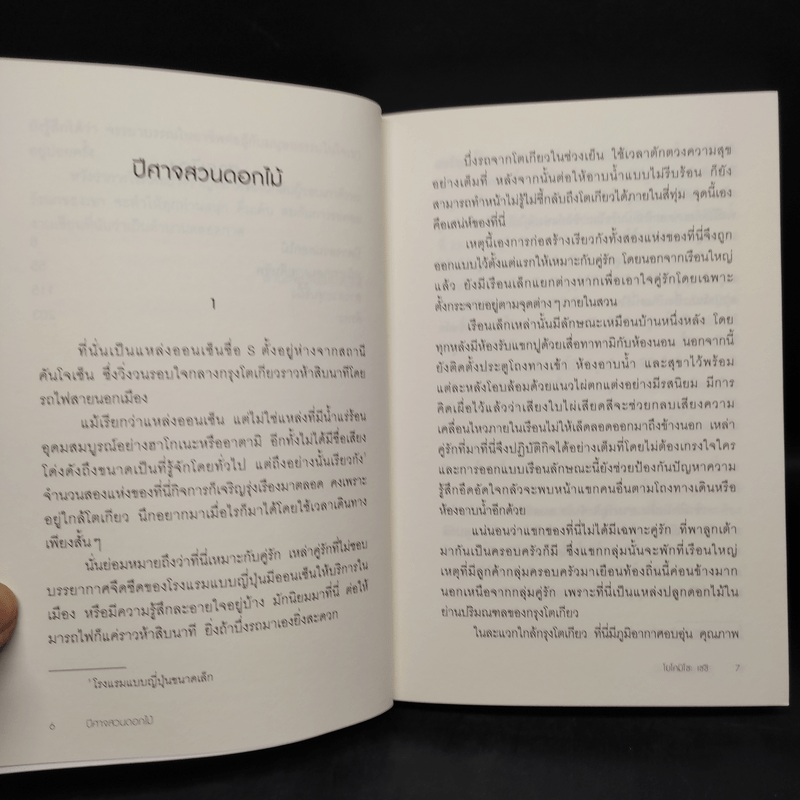 ปีศาจสวนดอกไม้
1
ที่นั่นเป็นแหล่งออนเซ็นชื่อ S ตั้งอยู่ห่างจากสถานี
คันโจเซ็น ซึ่งวิ่งวนรอบใจกลางกรุงโตเกียวราวห้าสิบนาทีโดย
รถไฟสายนอกเมือง
แม้เรียกว่าแหล่งออนเซ็น แต่ไม่ใช่แหล่งที่มีน้ำแร่ร้อน
อุดมสมบูรณ์อย่างฮาโกเนะหรืออาตามิ อีกทั้งไม่ได้มีชื่อเสียง
โด่งดังถึงขนาดเป็นที่รู้จักโดยทั่วไป แต่ถึงอย่างนั้นเรียวกัง¹
จำนวนสองแห่งของที่นี่กิจการก็เจริญรุ่งเรืองมาตลอด คงเพราะ
อยู่ใกล้โตเกียว นึกอยากมาเมื่อไรก็มาได้โดยใช้เวลาเดินทาง
เพียงสั้นๆ
นั่นย่อมหมายถึงว่าที่นี่เหมาะกับคู่รัก เหล่าคู่รักที่ไม่ชอบ
บรรยากาศจืดชืดของโรงแรมแบบญี่ปุ่นมีออนเซ็นให้บริการใน
เมือง หรือมีความรู้สึกละอายใจอยู่บ้าง มักนิยมมาที่นี่ ต่อให้
มารถไฟก็แค่ราวห้าสิบนาที ยิ่งถ้าบึ่งรถมาเองยิ่งสะดวก
¹ โรงแรมแบบญี่ปุ่นขนาดเล็ก
6 ปีศาจสวนดอกไม้
บึ่งรถจากโตเกียวในช่วงเย็น ใช้เวลาตักตวงความสุข
อย่างเต็มที่ หลังจากนั้นต่อให้อาบน้ำแบบไม่รีบร้อน ก็ยัง
สามารถทำหน้าไม่รู้ไม่ชี้กลับถึงโตเกียวได้ภายในสี่ทุ่ม จุดนี้เอง
คือเสน่ห์ของที่นี่
เหตุนี้เองการก่อสร้างเรียวกังทั้งสองแห่งของที่นี่จึงถูก
ออกแบบไว้ตั้งแต่แรกให้เหมาะกับคู่รัก โดยนอกจากเรือนใหญ่
แล้ว ยังมีเรือนเล็กแยกต่างหากเพื่อเอาใจคู่รักโดยเฉพาะ
ตั้งกระจายอยู่ตามจุดต่างๆ ภายในสวน
เรือนเล็กเหล่านั้นมีลักษณะเหมือนบ้านหนึ่งหลัง โดย
ทุกหลังมีห้องรับแขกปูด้วยเสื่อทาทามิกับห้องนอน นอกจากนี้
ยังติดตั้งประตูโถงทางเข้า ห้องอาบน้ำ และสุขาไว้พร้อม
แต่ละหลังโอบล้อมด้วยแนวไผ่ตกแต่งอย่างมีรสนิยม มีการ
คิดเผื่อไว้แล้วว่าเสียงใบไผ่เสียดสีจะช่วยกลบเสียงความ
เคลื่อนไหวภายในเรือนไม่ให้เล็ดลอดออกมาถึงข้างนอก เหล่า
คู่รักที่มาที่นี่จึงปฏิบัติกิจได้อย่างเต็มที่โดยไม่ต้องเกรงใจใคร
และการออกแบบเรือนลักษณะนี้ยังช่วยป้องกันปัญหาความ
รู้สึกอึดอัดใจกลัวจะพบหน้าแขกคนอื่นตามโถงทางเดินหรือ
ห้องอาบน้ำอีกด้วย
แน่นอนว่าแขกของที่นี่ไม่ได้มีเฉพาะคู่รัก ที่พาลูกเต้า
มากันเป็นครอบครัวก็มี ซึ่งแขกกลุ่มนั้นจะพักที่เรือนใหญ่
เหตุที่มีลูกค้ากลุ่มครอบครัวมาเยือนท้องถิ่นนี้ค่อนข้างมาก
นอกเหนือจากกลุ่มคู่รัก เพราะที่นี่เป็นแหล่งปลูกดอกไม้ใน
ย่านปริมณฑลของกรุงโตเกียว
ในละแวกใกล้กรุงโตเกียว ที่นี่มีภูมิอากาศอบอุ่น คุณภาพ
โยโคมิโซะ เซชิ 7